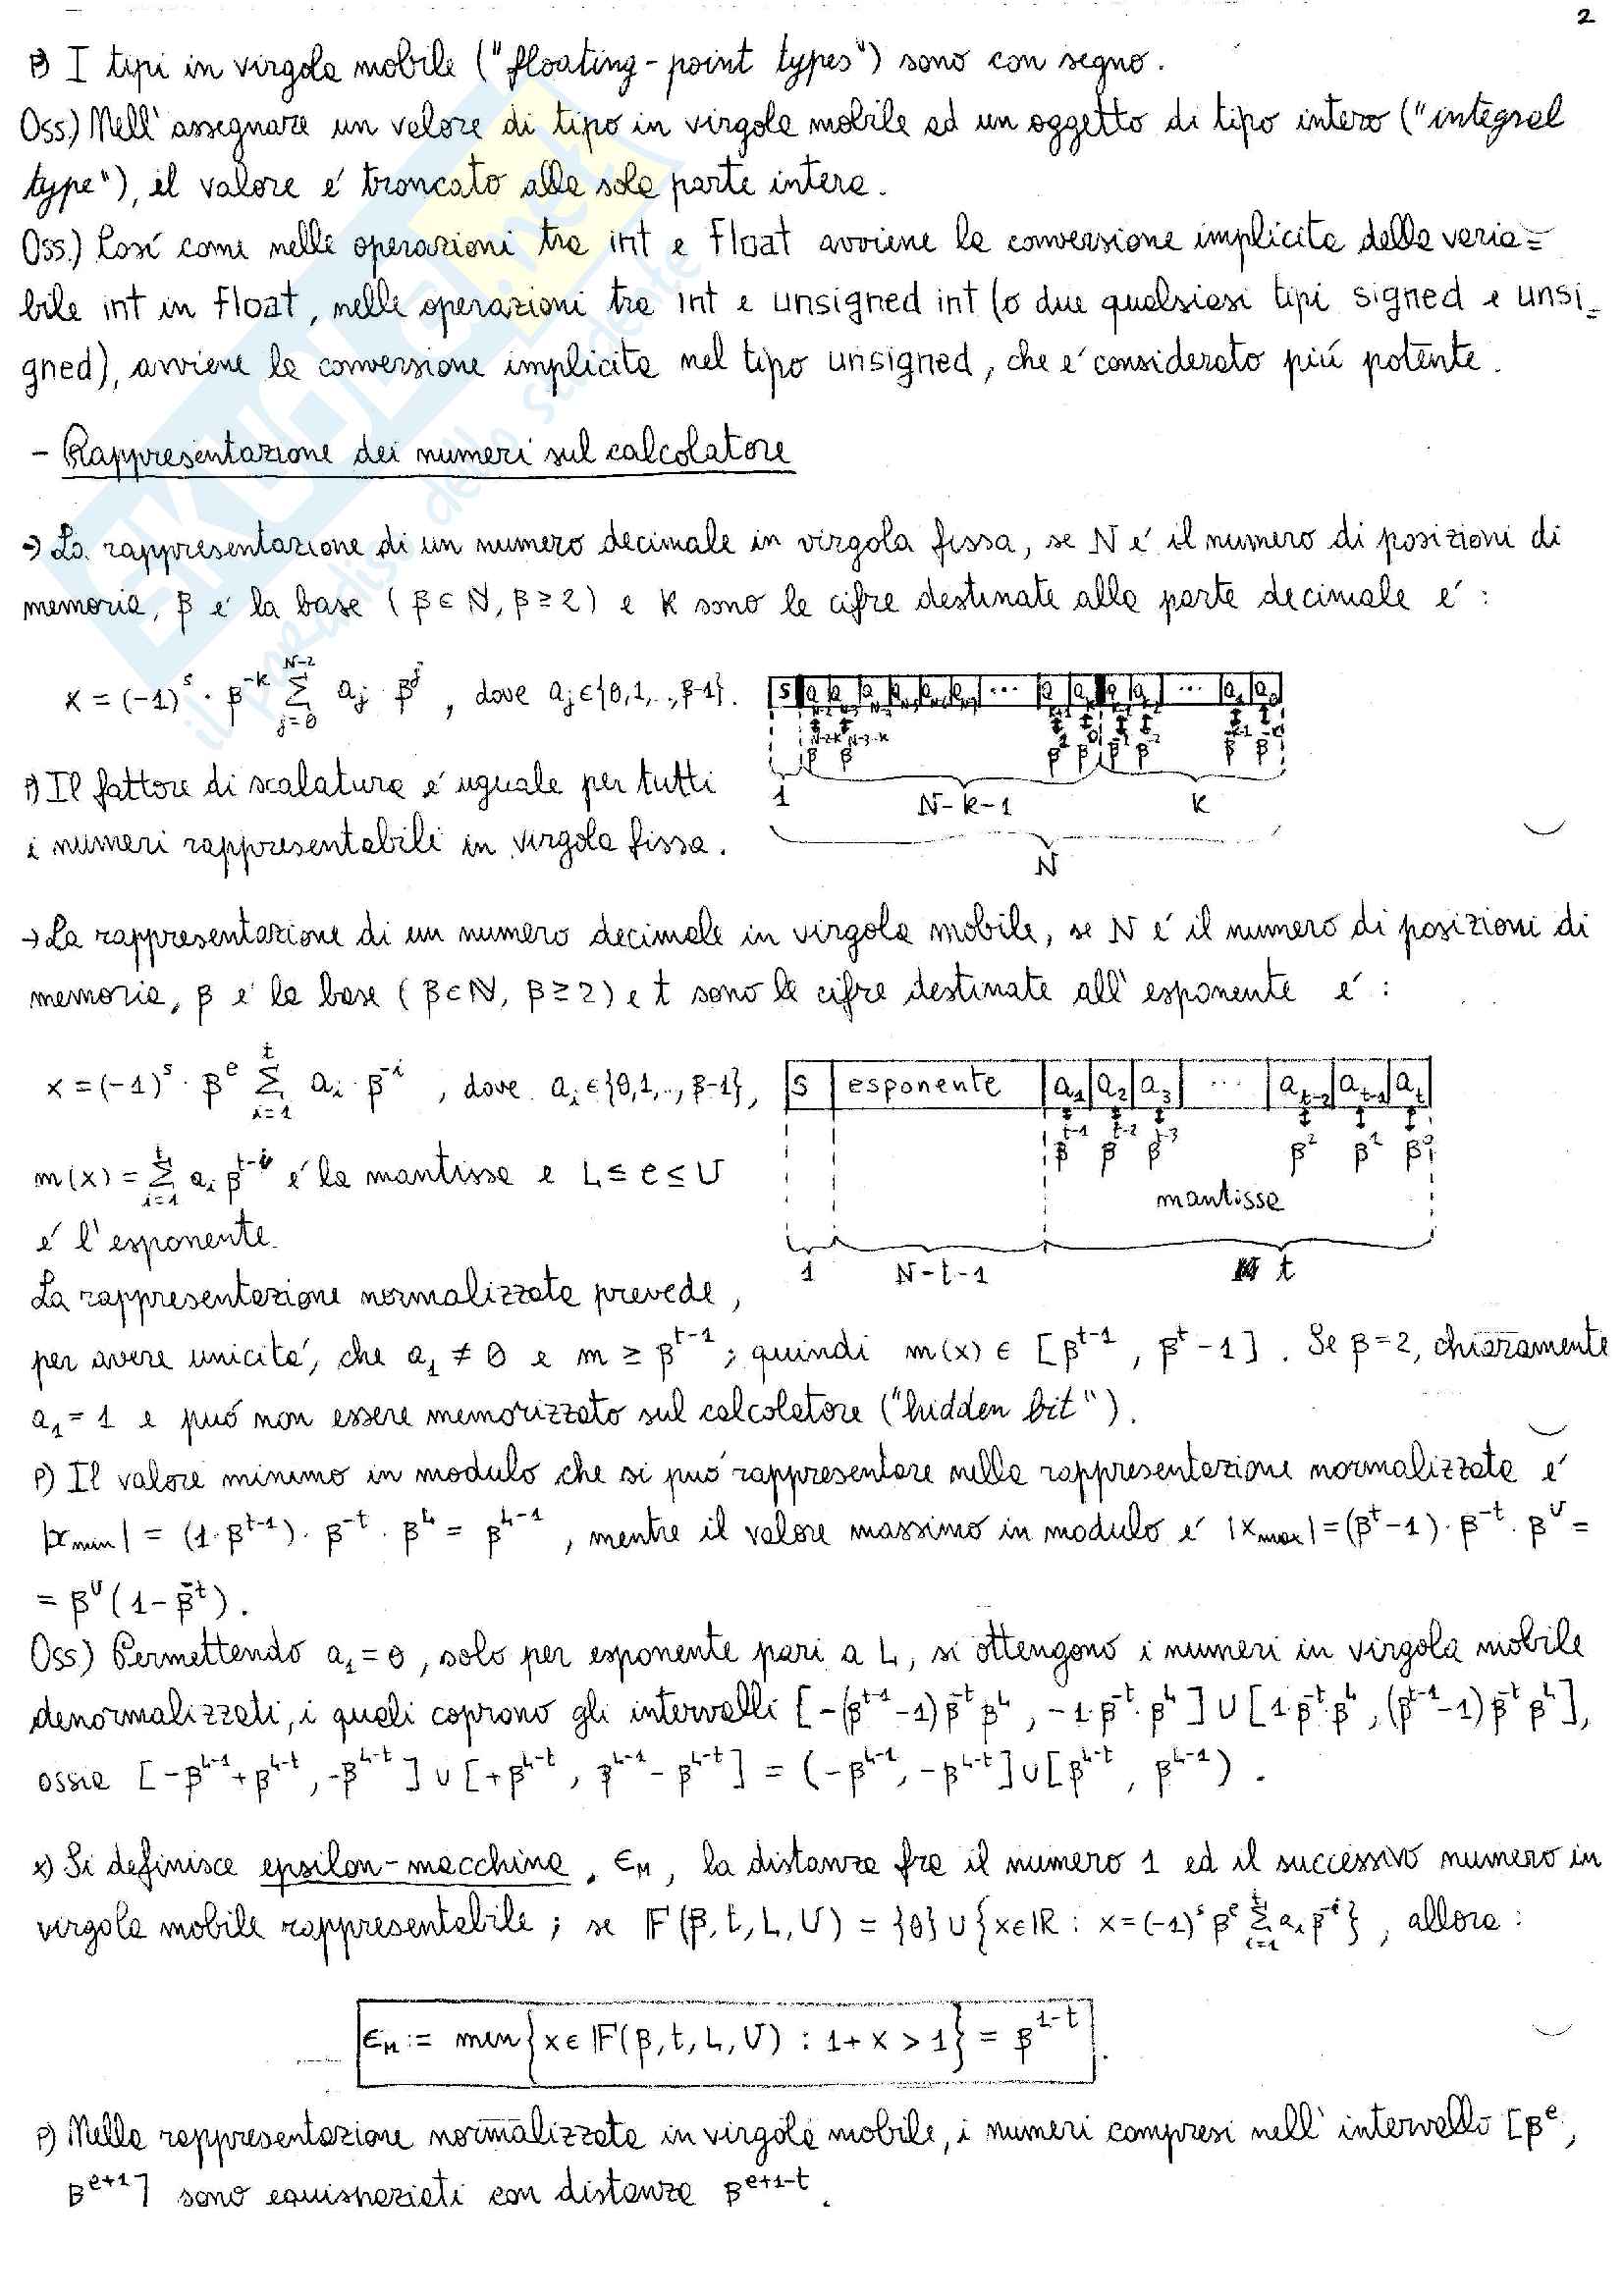 2
P) I tipi in virgola mobile ("floating-point types") sono con segno.
Oss.) Nell'assegnare un valore di tipo in virgola mobile ad un oggetto di tipo intero ("integral
type"), il valore é troncato alla sola parte intera.
Oss.) Cosí come nelle operazioni tra int e float avviene la conversione implicita della varia=
bile int in float, nelle operazioni tra int e unsigned int (o due qualsiasi tipi signed e unsi=
gned), avviene la conversione implicita nel tipo unsigned, che é considerato piú potente.
- Rappresentazione dei numeri sul calcolatore
→ La rappresentazione di un numero decimale in virgola fissa, se N é il numero di posizioni di
memoria, β é la base (β∈N, β≥2) e k sono le cifre destinate alla parte decimale é:
x = (-1)^s · β^-k Σ_{j=0}^{N-2} a_j β^j , dove a_j∈{0,1,..,β-1}.
1 N-k-1 k
N
P) Il fattore di scalatura é uguale per tutti
i numeri rappresentabili in virgola fissa.
→ La rappresentazione di un numero decimale in virgola mobile, se N é il numero di posizioni di
memoria, β é la base (β∈N, β≥2) e t sono le cifre destinate all'esponente é:
x = (-1)^s · β^e Σ_{i=1}^{t} a_i · β^-i , dove a_i∈{0,1,..,β-1},
s esponente a_1 a_2 a_3 ... a_{t-2} a_{t-1} a_t
β^{t-1} β^{t-2} β^{t-3} β^2 β^1 β^0
mantissa
1 N-t-1 t
m(x) = Σ_{i=1}^{t} a_i β^{t-i} é la mantissa e L ≤ e ≤ U
é l'esponente.
La rappresentazione normalizzata prevede,
per avere unicitá, che a_1 ≠ 0 e m ≥ β^{t-1}; quindi m(x) ∈ [β^{t-1}, β^t-1]. Se β=2, chiaramente
a_1 = 1 e puó non essere memorizzato sul calcolatore ("hidden bit").
P) Il valore minimo in modulo che si puó rappresentare nella rappresentazione normalizzata é
|x_min| = (1·β^{t-1})·β^-t·β^L = β^{L-1}, mentre il valore massimo in modulo é |x_max| = (β^t-1)·β^-t·β^U =
= β^U(1-β^-t).
Oss.) Permettendo a_1=0, solo per esponente pari a L, si ottengono i numeri in virgola mobile
denormalizzati, i quali coprono gli intervalli [-(β^{t-1}-1)β^-t β^L, -1·β^-t·β^L] ∪ [1·β^-t·β^L, (β^{t-1}-1)β^-t β^L],
ossia [-β^{L-1}+β^{L-t}, -β^{L-t}] ∪ [+β^{L-t}, β^{L-1}-β^{L-t}] = (-β^{L-1}, -β^{L-t}] ∪ [β^{L-t}, β^{L-1}).
x) Si definisce epsilon-macchina, ϵ_M, la distanza fra il numero 1 ed il successivo numero in
virgola mobile rappresentabile; se F(β,t,L,U) = {0} ∪ {x∈R : x=(-1)^s β^e Σ_{i=1}^{t} a_i β^-i}, allora:
ϵ_M := min{x∈F(β,t,L,U) : 1+x>1} = β^{1-t}.
P) Nella rappresentazione normalizzata in virgola mobile, i numeri compresi nell'intervallo [β^e,
β^{e+1}] sono equispaziati con distanza β^{e+1-t}.